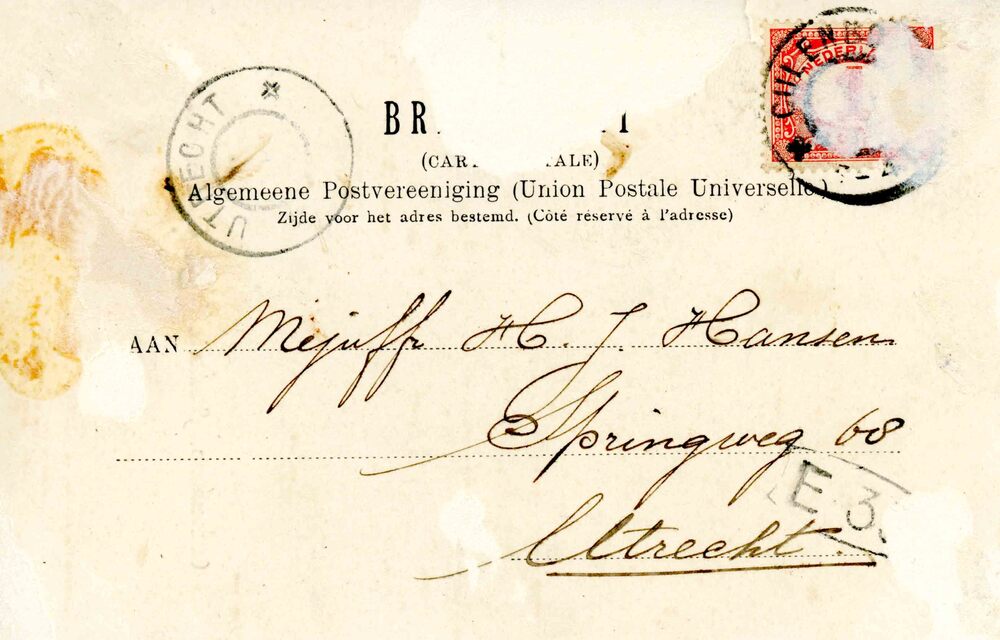 NEDERL
UTRECHT
BR
(CAR
ALE)
Algemeene Postvereeniging (Union Postale Universelle)
Zijde voor het adres bestemd. (Côté réservé à l'adresse)
AAN Mejuffr H. J. Hansen
Springweg 68
E 3
Utrecht